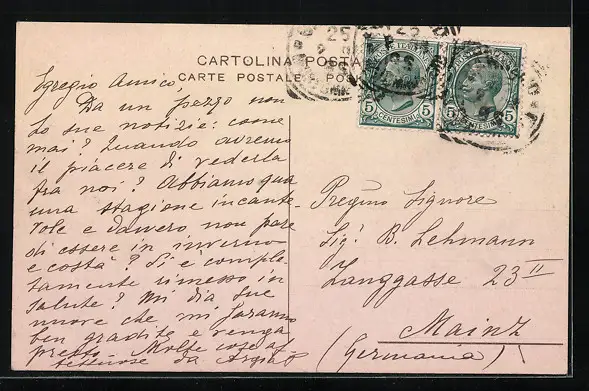 CARTOLINA POSTA
CARTE POSTALE POS
25
POSTE ITALIANE
5 5
CENTESIMI
5 5
CENTESIMI
Egregio Amico,
Da un pezzo non
ho sue notizie: come
mai? Quando avremo
il piacere di vederla
fra noi? Abbiamo qua
una stagione incante-
vole e davvero non pare
di essere in inverno
e costà? Si è comple-
tamente rimesso in
salute? Mi dia sue
nuove che mi saranno
ben gradite e venga
presto. Molte cose af
fettuose da
Pregmo Signore
Sigr B. Lehmann
Langgasse 23 II
Mainz
(Germania)